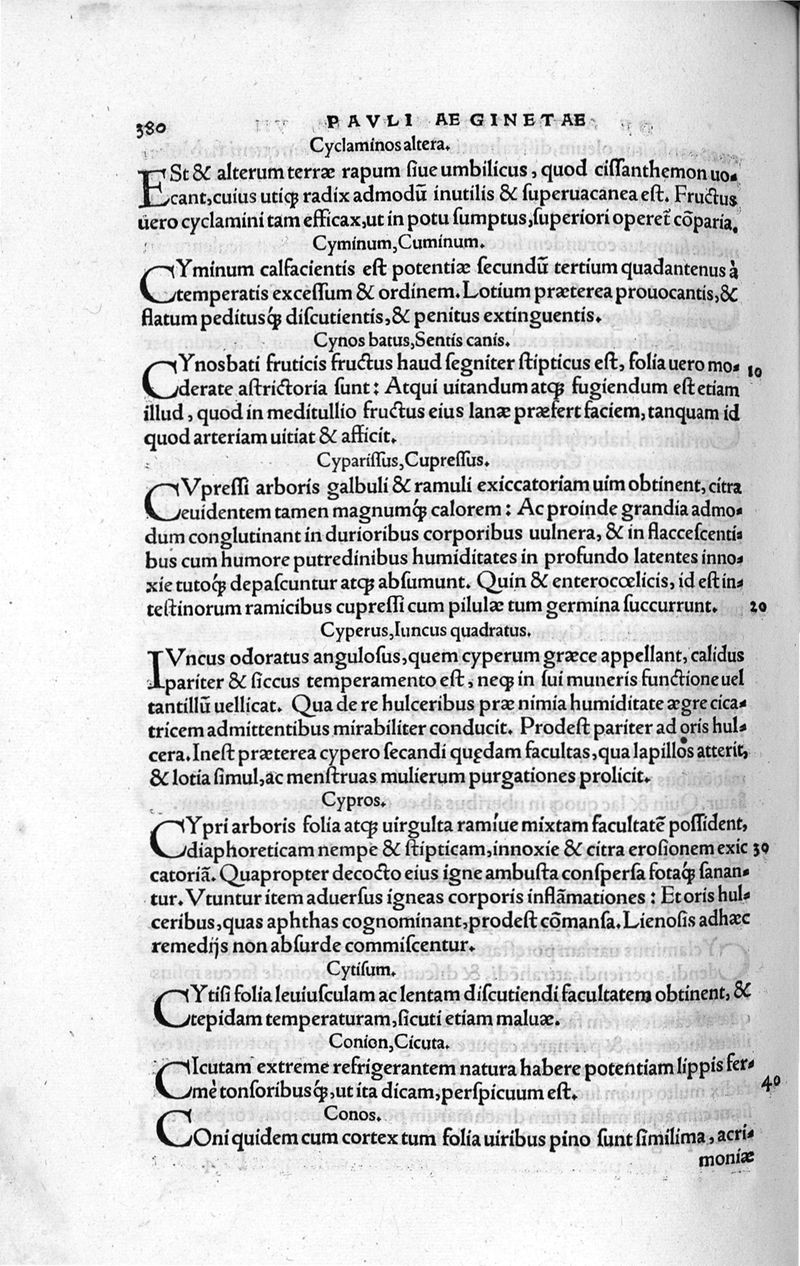 380 PAVLI AEGINETAE
Cyclaminos altera.
ESt & alterum terræ rapum ſiue umbilicus, quod ciſſanthemon uo-
cant, cuius utiqꝫ radix admodū inutilis & ſuperuacanea eſt. Fructus
uero cyclamini tam efficax, ut in potu ſumptus, ſuperiori operet̃ cõparia.
Cyminum, Cuminum.
CYminum calfacientis eſt potentiæ ſecundū tertium quadantenus à
temperatis exceſſum & ordinem. Lotium præterea prouocantis, &
flatum peditusqꝫ diſcutientis, & penitus extinguentis.
Cynos batus, Sentis canis.
CYnosbati fruticis fructus haud ſegniter ſtipticus eſt, folia uero mo- 10
derate aſtrictoria ſunt: Atqui uitandum atqꝫ fugiendum eſt etiam
illud, quod in meditullio fructus eius lanæ præfert faciem, tanquam id
quod arteriam uitiat & afficit.
Cypariſſus, Cupreſſus.
CVpreſſi arboris galbuli & ramuli exiccatoriam uim obtinent, citra
euidentem tamen magnumqꝫ calorem: Ac proinde grandia admo-
dum conglutinant in durioribus corporibus uulnera, & in flacceſcenti-
bus cum humore putredinibus humiditates in profundo latentes inno-
xie tutoqꝫ depaſcuntur atqꝫ abſumunt. Quin & enterocœlicis, id eſt in-
teſtinorum ramicibus cupreſſi cum pilulæ tum germina ſuccurrunt. 20
Cyperus, Iuncus quadratus.
IVncus odoratus anguloſus, quem cyperum græce appellant, calidus
pariter & ſiccus temperamento eſt, neqꝫ in ſui muneris functione uel
tantillū uellicat. Qua de re hulceribus præ nimia humiditate ægre cica-
tricem admittentibus mirabiliter conducit. Prodeſt pariter ad oris hul-
cera. Ineſt præterea cypero ſecandi quędam facultas, qua lapillos atterit,
& lotia ſimul, ac menſtruas mulierum purgationes prolicit.
Cypros.
CYpri arboris folia atqꝫ uirgulta ramíue mixtam facultatē poſſident,
diaphoreticam nempe & ſtipticam, innoxie & citra eroſionem exic 30
catoriã. Quapropter decocto eius igne ambuſta conſperſa fotaqꝫ ſanan-
tur. Vtuntur item aduerſus igneas corporis inflãmationes: Et oris hul-
ceribus, quas aphthas cognominant, prodeſt cõmanſa. Lienoſis adhæc
remedijs non abſurde commiſcentur.
Cytiſum.
CYtiſi folia leuiuſculam ac lentam diſcutiendi facultatem obtinent, &
tepidam temperaturam, ſicuti etiam maluæ.
Conion, Cicuta.
CIcutam extreme refrigerantem natura habere potentiam lippis fer-
mè tonſoribusqꝫ, ut ita dicam, perſpicuum eſt. 40
Conos.
COni quidem cum cortex tum folia uiribus pino ſunt ſimilima, acri-
moniæ